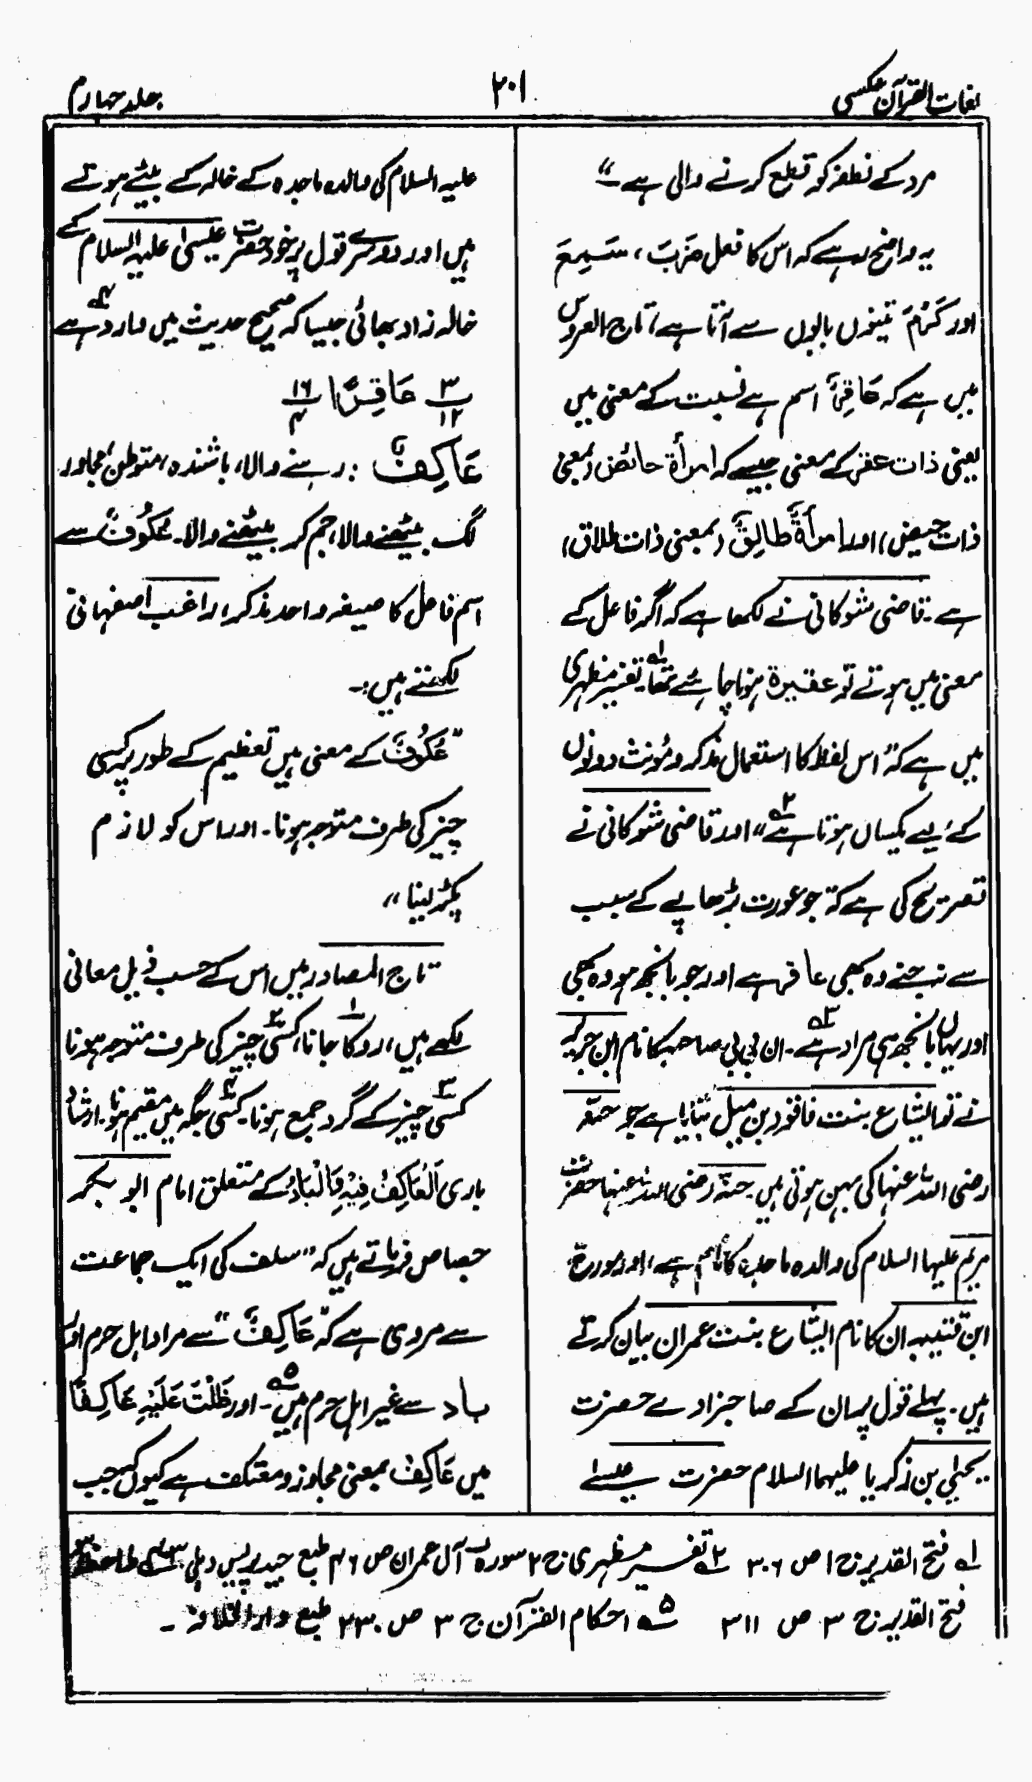 لغات القرآن عکسی
۲۰۱
جلد چہارم
مرد کے نطفہ کو قطع کرنے والی ہے۔“
یہ واضح رہے کہ اس کا فعل ضَرَبَ، سَمِعَ
اور کَرُمَ تینوں بابوں سے آتا ہے، تاج العروس
میں ہے کہ عَاقِرٌ اسم ہے نسبت کے معنی میں
یعنی ذات عقر کے معنی جیسے کہ امرأۃ حائض (بمعنی
ذات حیض) اور امرأۃٌ طالِقٌ (بمعنی ذات طلاق)
ہے۔ قاضی شوکانی نے لکھا ہے کہ اگر فاعل کے
معنی میں ہوتے تو عقیرۃ ہونا چاہئے تھا ۱؎ تفسیر مظہری
میں ہے کہ ”اس لفظ کا استعمال مذکر و مؤنث دونوں
کے لیے یکساں ہوتا ہے ۲؎“ اور قاضی شوکانی نے
تصریح کی ہے کہ جو عورت بڑھاپے کے سبب
سے نہ جنے وہ بھی عاقر ہے اور جو بانجھ ہو وہ بھی
اور یہاں بانجھ ہی مراد ہے ۳؎۔ ان بی بی صاحبہ کا نام ابن جریر
نے تو ایشاع بنت فاقود بن میبل بتایا ہے جو حنّہ
رضی اللہ عنہا کی بہن ہوتی ہیں حنّہ رضی اللہ عنہا حضرت
مریم علیہا السلام کی والدہ ماجدہ کا نام ہے، اور مورخ
ابن قتیبہ ان کا نام الیشاع بنت عمران بیان کرتے
ہیں۔ پہلے قول پر ان کے صاحبزادے حضرت
یحیٰی بن زکریا علیہما السلام حضرت عیسیٰ
علیہ السلام کی والدہ ماجدہ کے خالہ کے بیٹے ہوتے
ہیں اور دوسرے قول پر خود حضرت عیسیٰ علیہ السلام کے
خالہ زاد بھائی جیسا کہ صحیح حدیث میں وارد ہے ۴؎
۳/۱۲ عَاقِرًا ۱۶/۴
عَاکِفٌ : رہنے والا، باشندہ، متوطن، مجاور
لگ بیٹھنے والا، جم کر بیٹھنے والا۔ عُکُوفٌ سے
اسم فاعل کا صیغہ واحد مذکر، راغب اصفہانی
لکھتے ہیں:۔
”عُکُوفٌ کے معنی ہیں تعظیم کے طور پر کسی
چیز کی طرف متوجہ ہونا۔ اور اس کو لازم
پکڑ لینا“
تاج المصادر میں اس کے حسب ذیل معانی
لکھے ہیں، ۱ روکا جانا، ۲ کسی چیز کی طرف متوجہ ہونا
۳ کسی چیز کے گرد جمع ہونا۔ ۴ کسی جگہ میں مقیم ہونا۔ ارشاد
باری اَلْعَاکِفُ فِیْہِ وَالْبَادُ کے متعلق امام ابو بکر
جصاص فرماتے ہیں کہ ”سلف کی ایک جماعت
سے مروی ہے کہ ”عَاکِفٌ“ سے مراد اہل حرم اور
باد سے غیر اہل حرم ہیں ۵؎۔ اور ظَلْتَ عَلَیْہِ عَاکِفًا
میں عَاکِفٌ بمعنی مجاور و معتکف ہے کیوں کہ جب
۱؎ فتح القدیر ج ۱ ص ۳۰۶ ۲؎ تفسیر مظہری ج ۲ سورہ آل عمران ص ۴۶ طبع جید پریس دہلی
فتح القدیر ج ۳ ص ۳۱۱ ۵؎ احکام القرآن ج ۳ ص ۲۳۰ طبع دار الخلافۃ۔